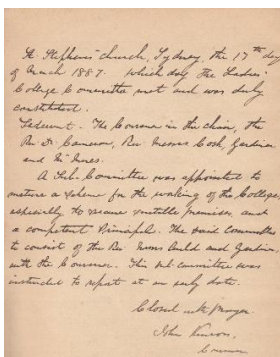 St Stephens' church, Sydney, the 17th day
of March 1887. which day the Ladies'
College Committee met and was duly
constituted.
Sederunt. The Convener in the chair, the
Rev. Dr. Cameron, Rev. Messrs Cosh, Gardiner
and Dr Innes.
A Sub. Committee was appointed to
mature a scheme for the working of the College,
especially to secure suitable premises and
a competent Principal. The said Committee
to consist of the Rev Messrs Auld and Gardiner,
with the Convener. This sub-committee was
instructed to report at an early date.
Closed with Prayer.
John
Convener